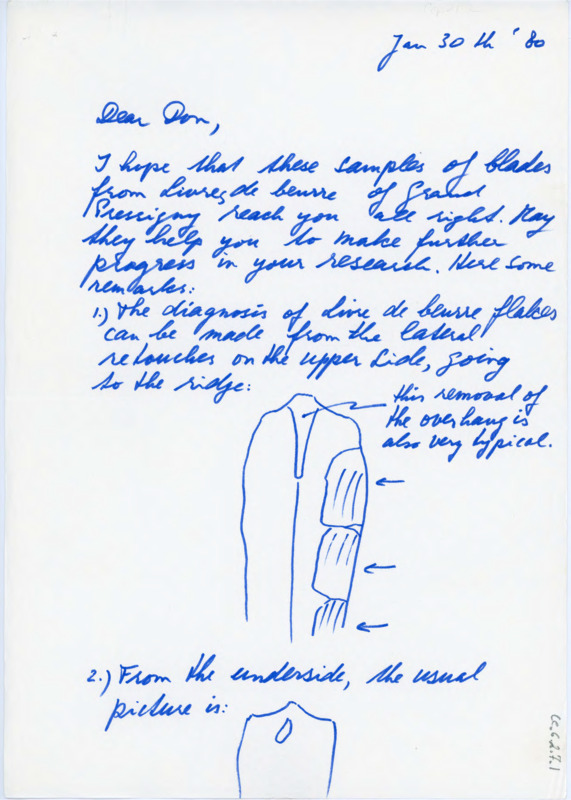 Jan 30 th '80
Dear Don,
I hope that these samples of blades
from Livres de beurre of Grand
Pressigny reach you all right. May
they help you to make further
progress in your research. Here some
remarks:
1.) The diagnosis of Livre de beurre flakes
can be made from the lateral
retouches on the upper side, going
to the ridge:
this removal of
the overhang is
also very typical.
2.) From the underside, the usual
picture is:
CC.6.2.7.1